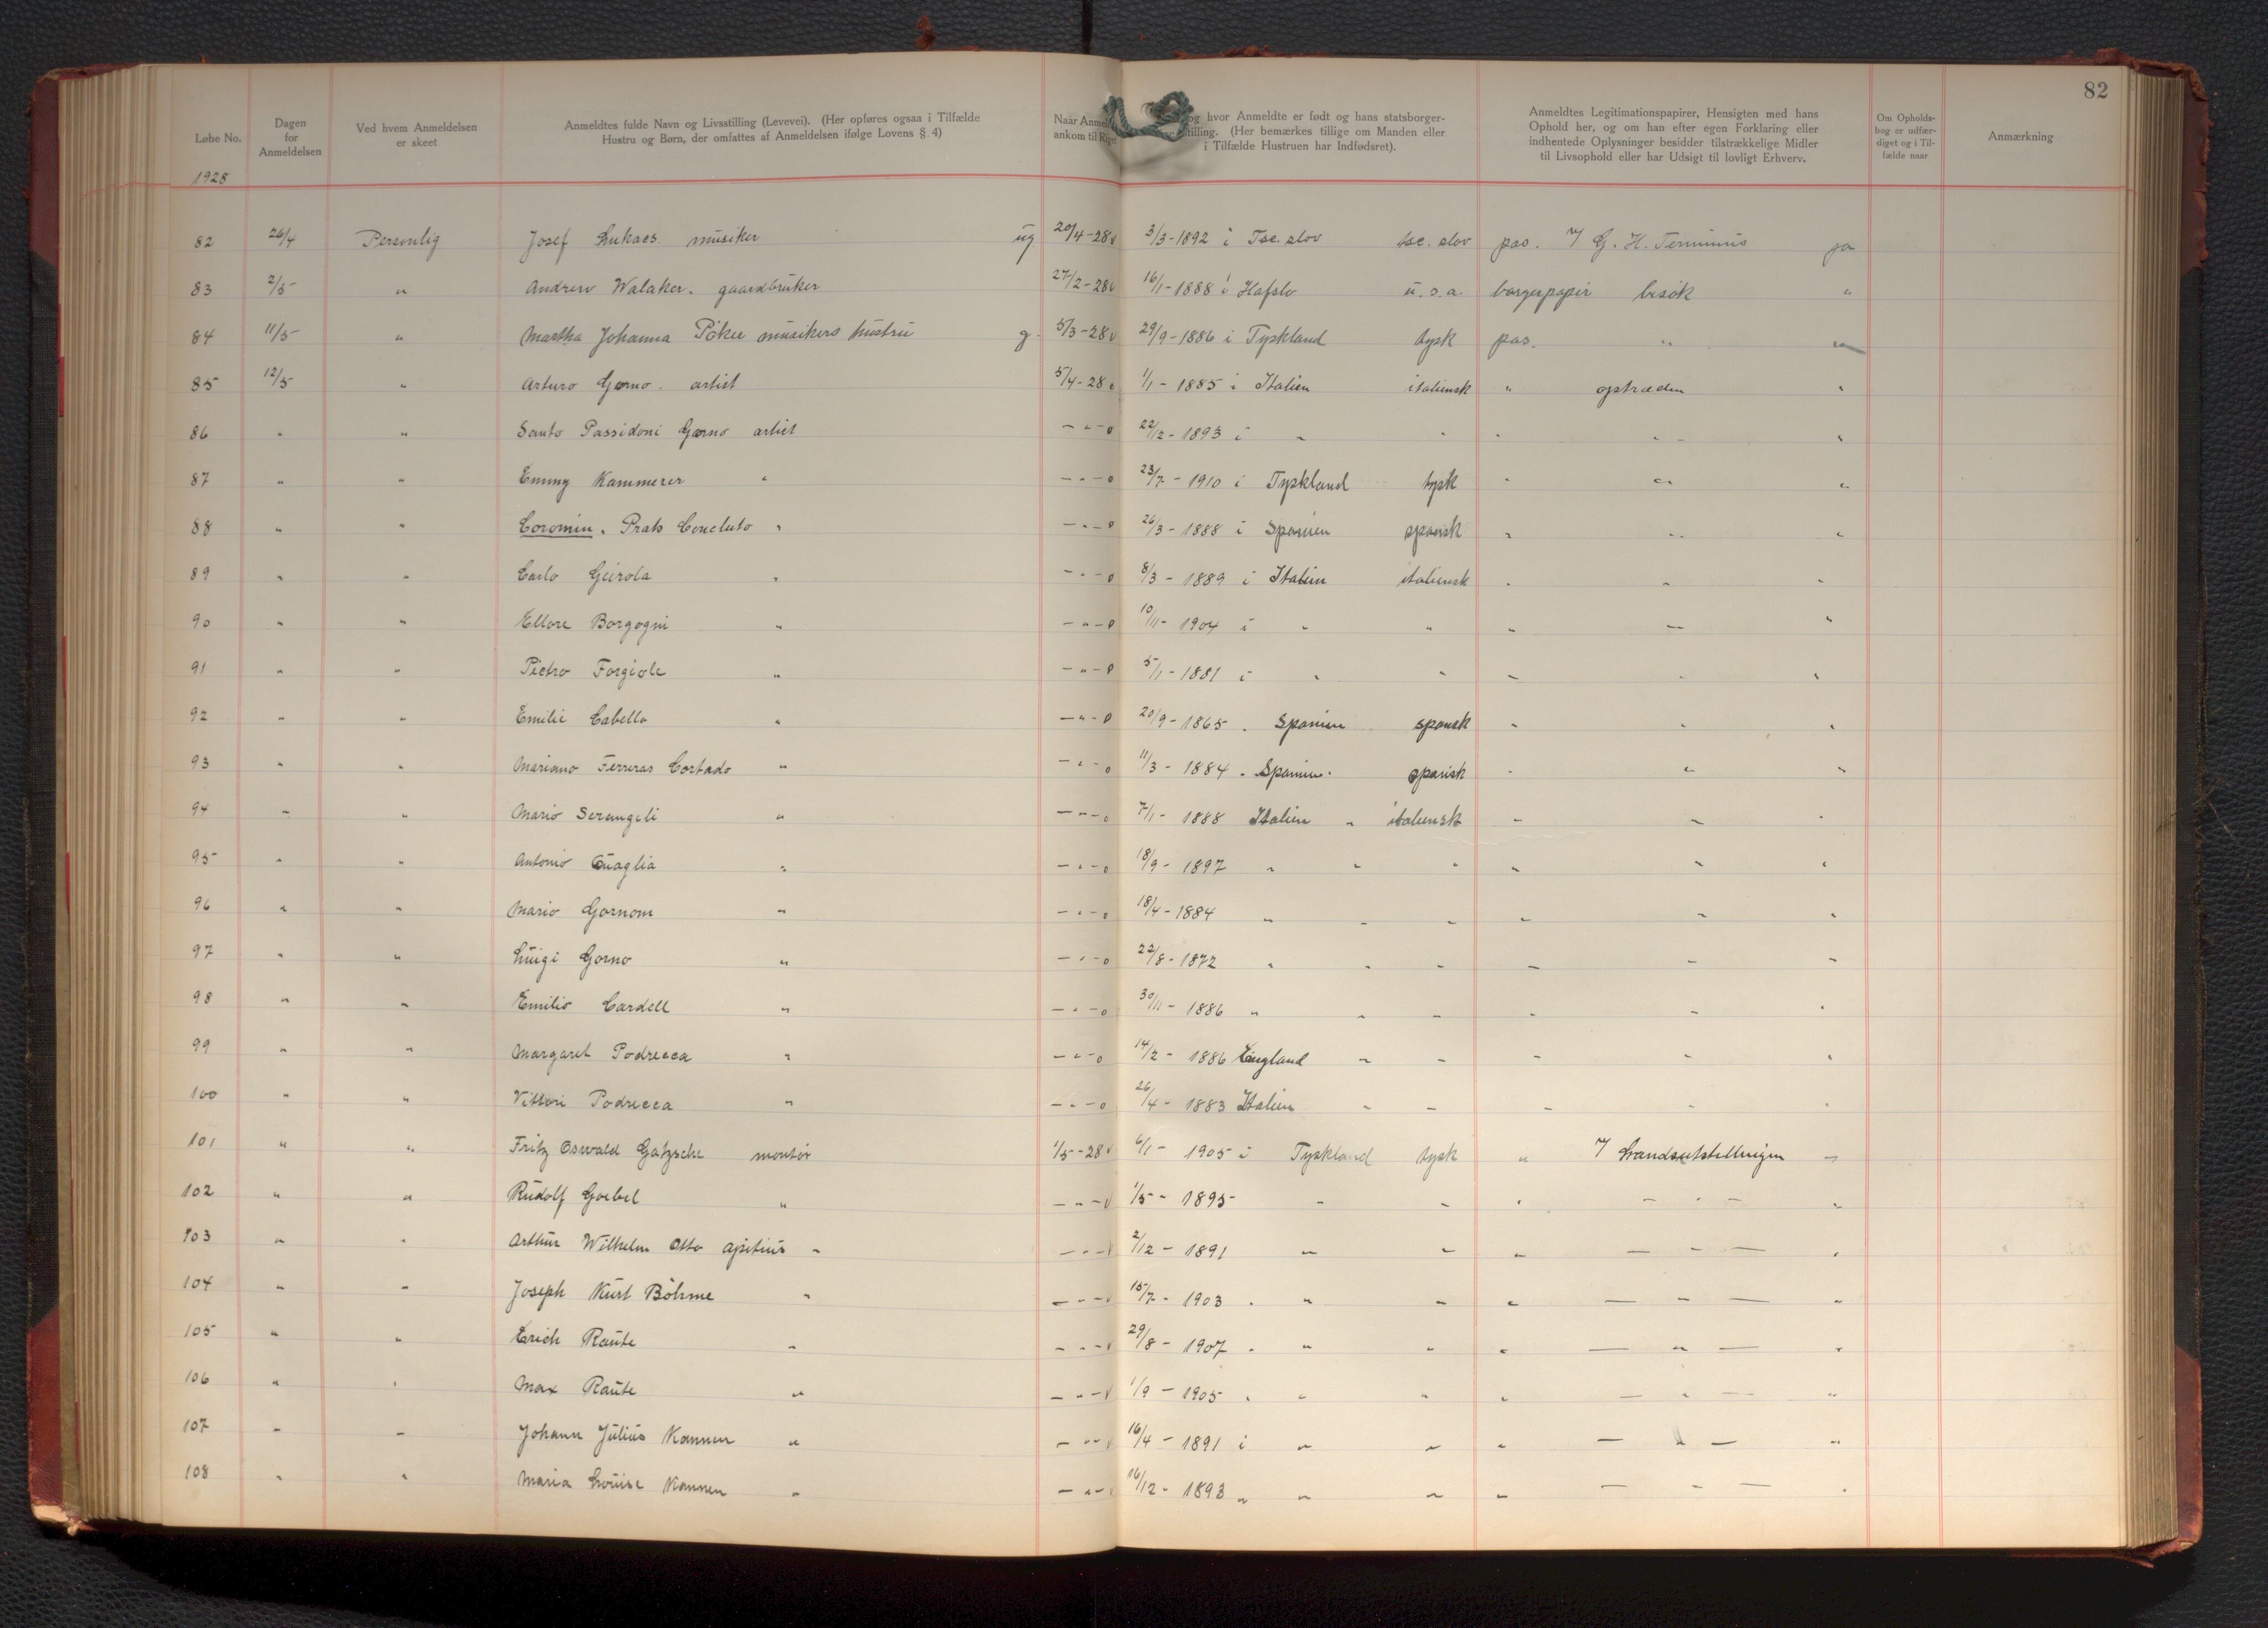 82
Løbe No. Dagen for Anmeldelsen Ved hvem Anmeldelsen er skeet Anmeldtes fulde Navn og Livsstilling (Levevei). (Her opføres ogsaa i Tilfælde Hustru og Børn, der omfattes af Anmeldelsen ifølge Lovens §. 4) Naar Anmel ankom til Rig og hvor Anmeldte er født og hans statsborger- tilling. (Her bemærkes tillige om Manden eller i Tilfælde Hustruen har Indfødsret). Anmeldtes Legitimationspapirer, Hensigten med hans Ophold her, og om han efter egen Forklaring eller indhentede Oplysninger besidder tilstrækkelige Midler til Livsophold eller har Udsigt til lovligt Erhverv. Om Opholds- bog er udfær- diget og i Til- fælde naar Anmærkning
1928
82 26/4 Personlig Josef Lukacs musiker ug 20/4-28 v 3/3-1892 i Tsc. slov tsc. slov pas. G. H. Terminus ja
83 2/5 " Andrew Walaker. gaardbruker 27/2-28 v 16/1-1888 i Hafslo u.s.a. borgerpapir besök "
84 11/5 " Martha Johanna Pöker musikers hustru g. 5/3-28 v 29/9-1886 i Tyskland tysk pas. " "
85 12/5 " Arturo Gorno. artist 5/4-28 o 1/1-1885 i Italien italiensk " optræden "
86 " " Santo Passidoni Gorno artist - " - o 22/2-1893 i " " " " "
87 " " Emmy Kammerer " - " - o 23/7-1910 i Tyskland tysk " " "
88 " " Coromin. Prats Concluto " - " - o 26/3-1888 i Spanien spansk " " "
89 " " Carlo Geirola " - " - o 8/3-1889 i Italien italiensk " " "
90 " " Ettore Borgogni " - " - o 10/11-1904 i " " " " "
91 " " Pietro Forgiole " - " - o 5/1-1881 i " " " " "
92 " " Emilie Cabello " - " - o 20/9-1865 " Spanien spansk " " "
93 " " Mariano Ferreras Cortado " - " - o 11/3-1884 " Spanien " spansk " " "
94 " " Mario Serangeli " - " - o 7/1-1888 Italien " italiensk " " "
95 " " Antonio Quaglia " - " - o 18/9-1897 " " " " " "
96 " " Mario Gornom " - " - o 18/4-1884 " " " " " "
97 " " Luigi Gorno " - " - o 22/8-1872 " " " " " "
98 " " Emilio Cardell " - " - o 30/11-1886 " " " " " "
99 " " Margaret Podrecca " - " - o 14/2-1886 England " " " " "
100 " " Vittori Podrecca " - " - o 26/4-1883 Italien " " " " "
101 " " Fritz Oswald Gatzsche montör 1/5-28 v 6/1-1905 i Tyskland tysk " Landsutstillingen "
102 " " Rudolf Goebel " - " - v 1/5-1895 " " " - " - "
103 " " Arthur Wilhelm Otto Apitius " - " - v 2/12-1891 " " " - " - "
104 " " Joseph Kurt Böhme " - " - v 15/7-1903 " " " " - " - "
105 " " Erich Raute " - " - v 29/8-1907 " " " " - " - "
106 " " Max Raute " - " - v 1/9-1905 " " " " - " - "
107 " " Johann Julius Kannen " - " - v 16/4-1891 i " " " - " - "
108 " " Maria Louise Kannen " - " - v 16/12-1893 " " " " - " - "